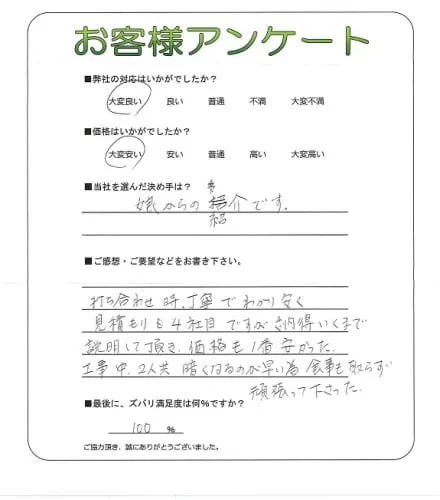 お客様アンケート
■弊社の対応はいかがでしたか?
大変良い 良い 普通 不満 大変不満
■価格はいかがでしたか?
大変安い 安い 普通 高い 大変高い
■当社を選んだ決め手は?
娘からの紹介です。
■ご感想・ご要望などをお書き下さい。
打ち合わせ時、丁寧でわかり安く
見積もりも4社目ですが納得いくまで
説明して頂き、価格も1番安かった。
工事中、2人共暗くなるのが早い為食事も取らず
頑張って下さった。
■最後に、ズバリ満足度は何%ですか?
100 %
ご協力頂き、誠にありがとうございました。